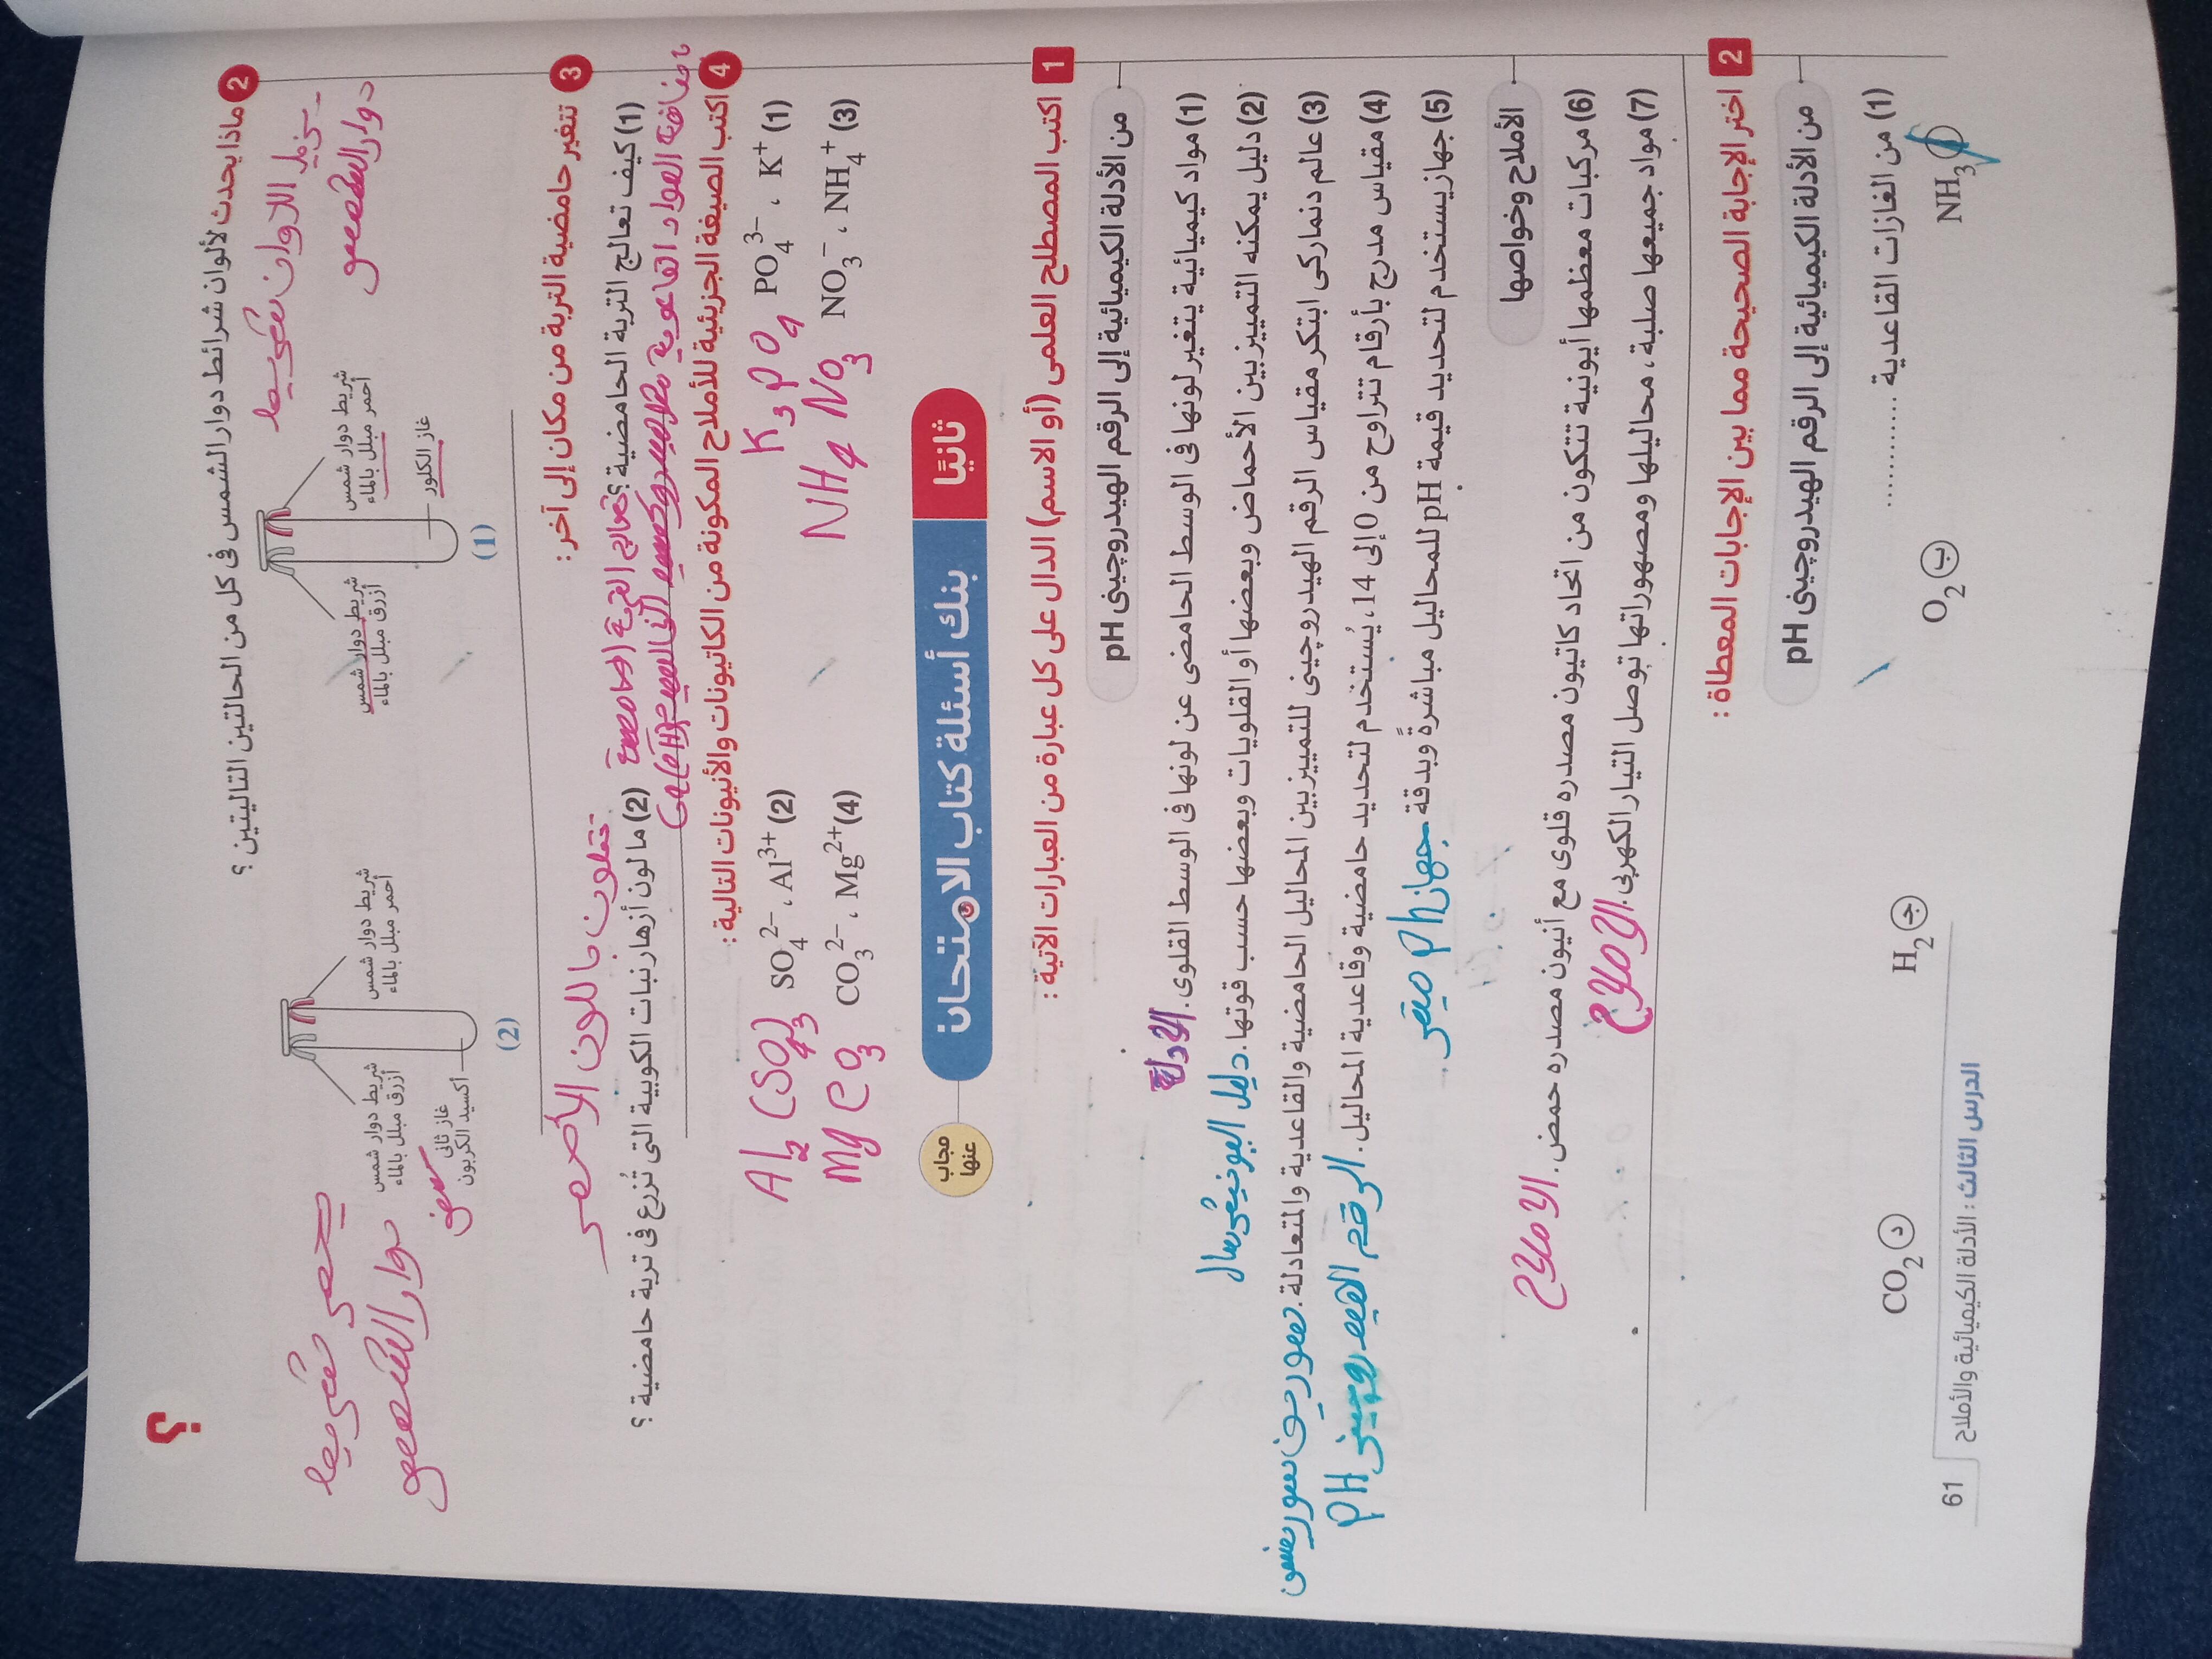 ؟
2 ماذا يحدث لألوان شرائط دوار الشمس فى كل من الحالتين التاليتين ؟
يزيل الالوان
دوار الشمس
شريط دوار شمس
أزرق مبلل بالماء
شريط دوار شمس
أحمر مبلل بالماء
غاز الكلور
(1)
يحمر شريط
دوار الشمس
شريط دوار شمس
أزرق مبلل بالماء
شريط دوار شمس
أحمر مبلل بالماء
غاز ثانى
أكسيد الكربون
(2)
3 تتغير حامضية التربة من مكان إلى آخر :
(1) كيف تعالج التربة الحامضية ؟
تعالج التربة الحامضية
باضافة المواد القاعدية
(2) ما لون أزهار نبات الكوبية التى تُزرع فى تربة حامضية ؟
تتلون باللون
4 اكتب الصيغة الجزيئية للأملاح المكونة من الكاتيونات والأنيونات التالية :
(1) PO₄³⁻ ، K⁺ K₃PO₄
(2) SO₄²⁻ ، Al³⁺ Al₂(SO₄)₃
(3) NO₃⁻ ، NH₄⁺ NH₄NO₃
(4) CO₃²⁻ ، Mg²⁺ MgCO₃
ثانيًا بنك أسئلة كتاب الامتحان مجاب عنها
1 اكتب المصطلح العلمى (أو الاسم) الدال على كل عبارة من العبارات الآتية :
من الأدلة الكيميائية إلى الرقم الهيدروچينى pH
(1) مواد كيميائية يتغير لونها فى الوسط الحامضى عن لونها فى الوسط القلوى. الأدلة
(2) دليل يمكنه التمييز بين الأحماض وبعضها أو القلويات وبعضها حسب قوتها. دليل اليونيفرسال
(3) عالم دنماركى ابتكر مقياس الرقم الهيدروچينى للتمييز بين المحاليل الحامضية والقاعدية والمتعادلة.
(4) مقياس مدرج بأرقام تتراوح من 0 إلى 14، يُستخدم لتحديد حامضية وقاعدية المحاليل. الرقم الهيدروچينى PH
(5) جهاز يستخدم لتحديد قيمة pH للمحاليل مباشرةً وبدقة. جهاز Ph ميتر
الأملاح وخواصها
(6) مركبات معظمها أيونية تتكون من اتحاد كاتيون مصدره قلوى مع أنيون مصدره حمض. الاملاح
(7) مواد جميعها صلبة، محاليلها ومصهوراتها توصل التيار الكهربى. الاملاح
2 اختر الإجابة الصحيحة مما بين الإجابات المعطاة :
من الأدلة الكيميائية إلى الرقم الهيدروچينى pH
(1) من الغازات القاعدية ............
أ NH₃
ب O₂
ج H₂
د CO₂
61 الدرس الثالث : الأدلة الكيميائية والأملاح